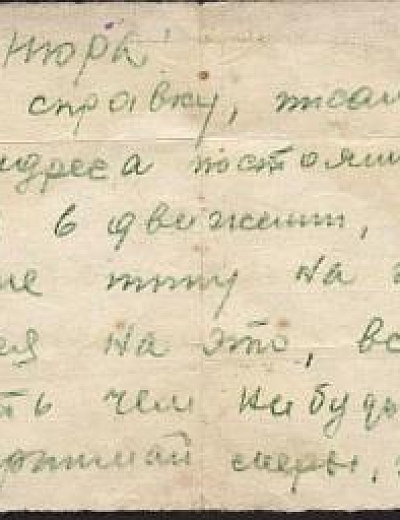 Нюра!
справку, писал
адреса постоян
в движении,
не пишу на
ся на это, вс
ть чем нибудь
принимай меры,